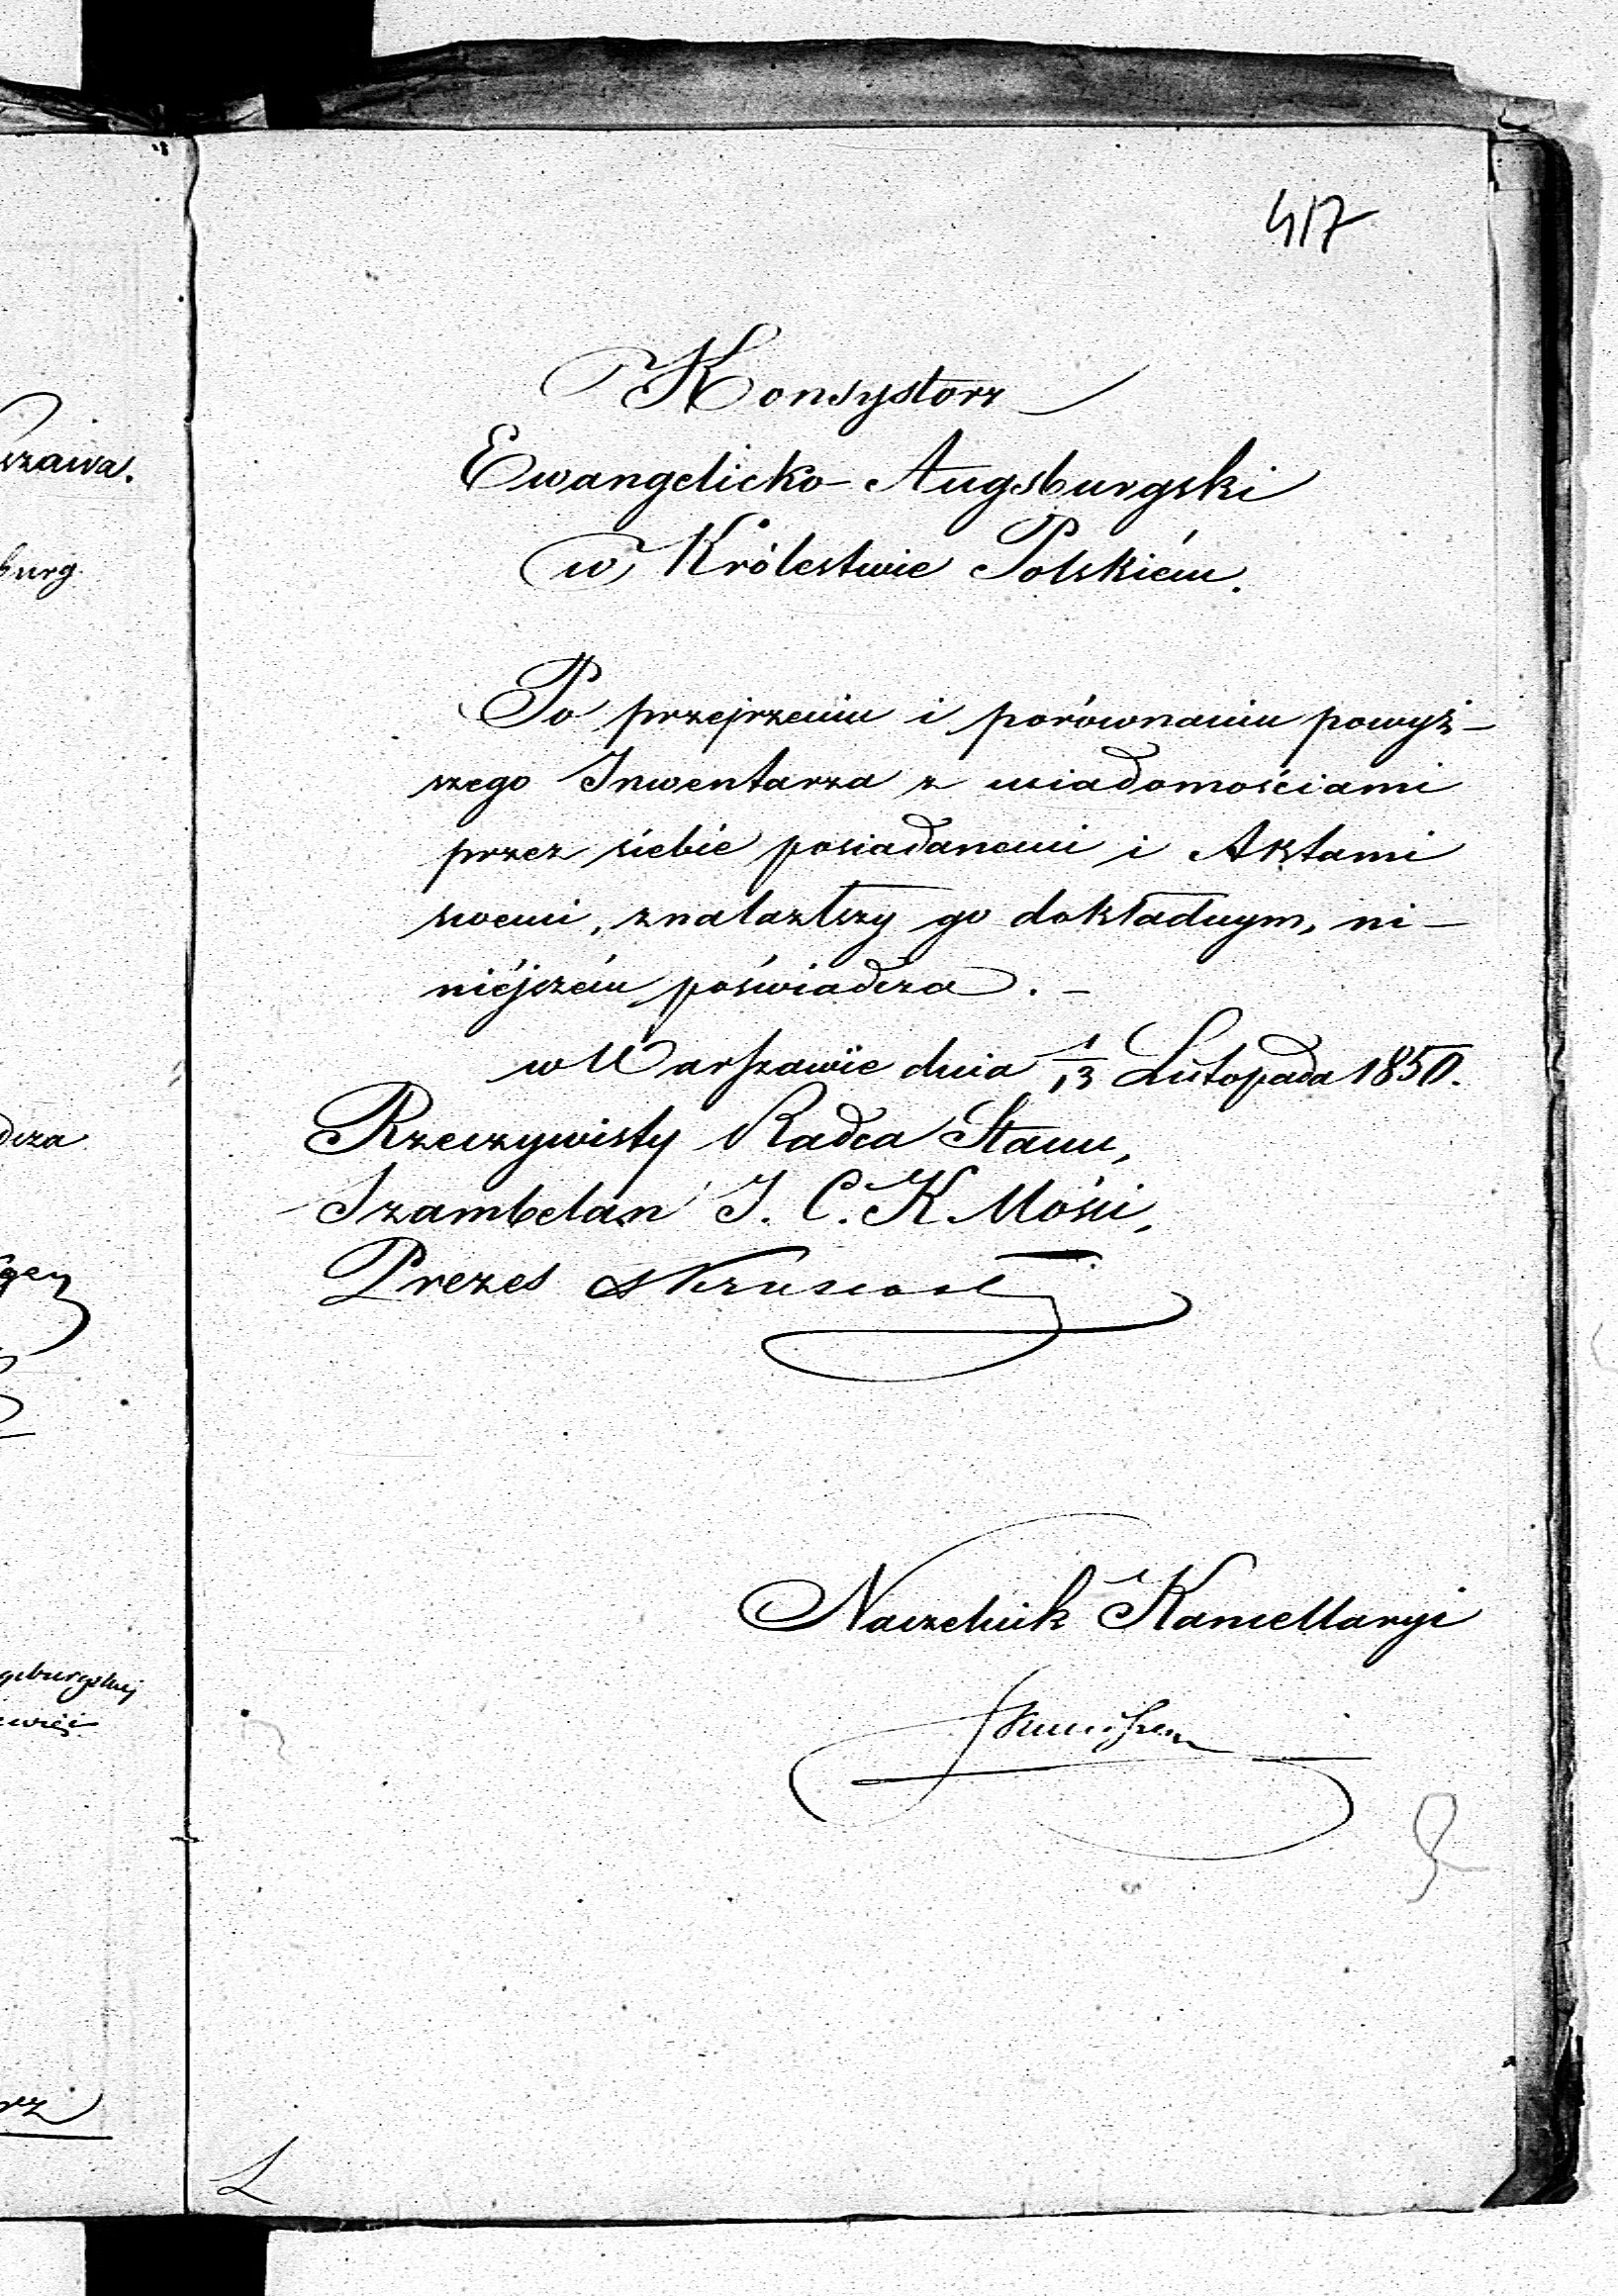 417
Konsystorz
Ewangelicko-Augsburgski
w Królestwie Polskiém.
Po przejrzeniu i porównaniu powyż-
szego Inwentarza z wiadomościami
przez siebie posiadanemi i Aktami
swemi, znalazłszy go dokładnym, ni-
niéjszém poświadcza. -
w Warszawie dnia 1/13 Listopada 1850.
Rzeczywisty Radca Stanu,
Szambelan J. C. K. Mości,
Prezes
Naczelnik Kancellaryi